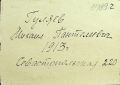 Гуляев
Михаил Пантелеевич
1913 г.
Севастопольская 220